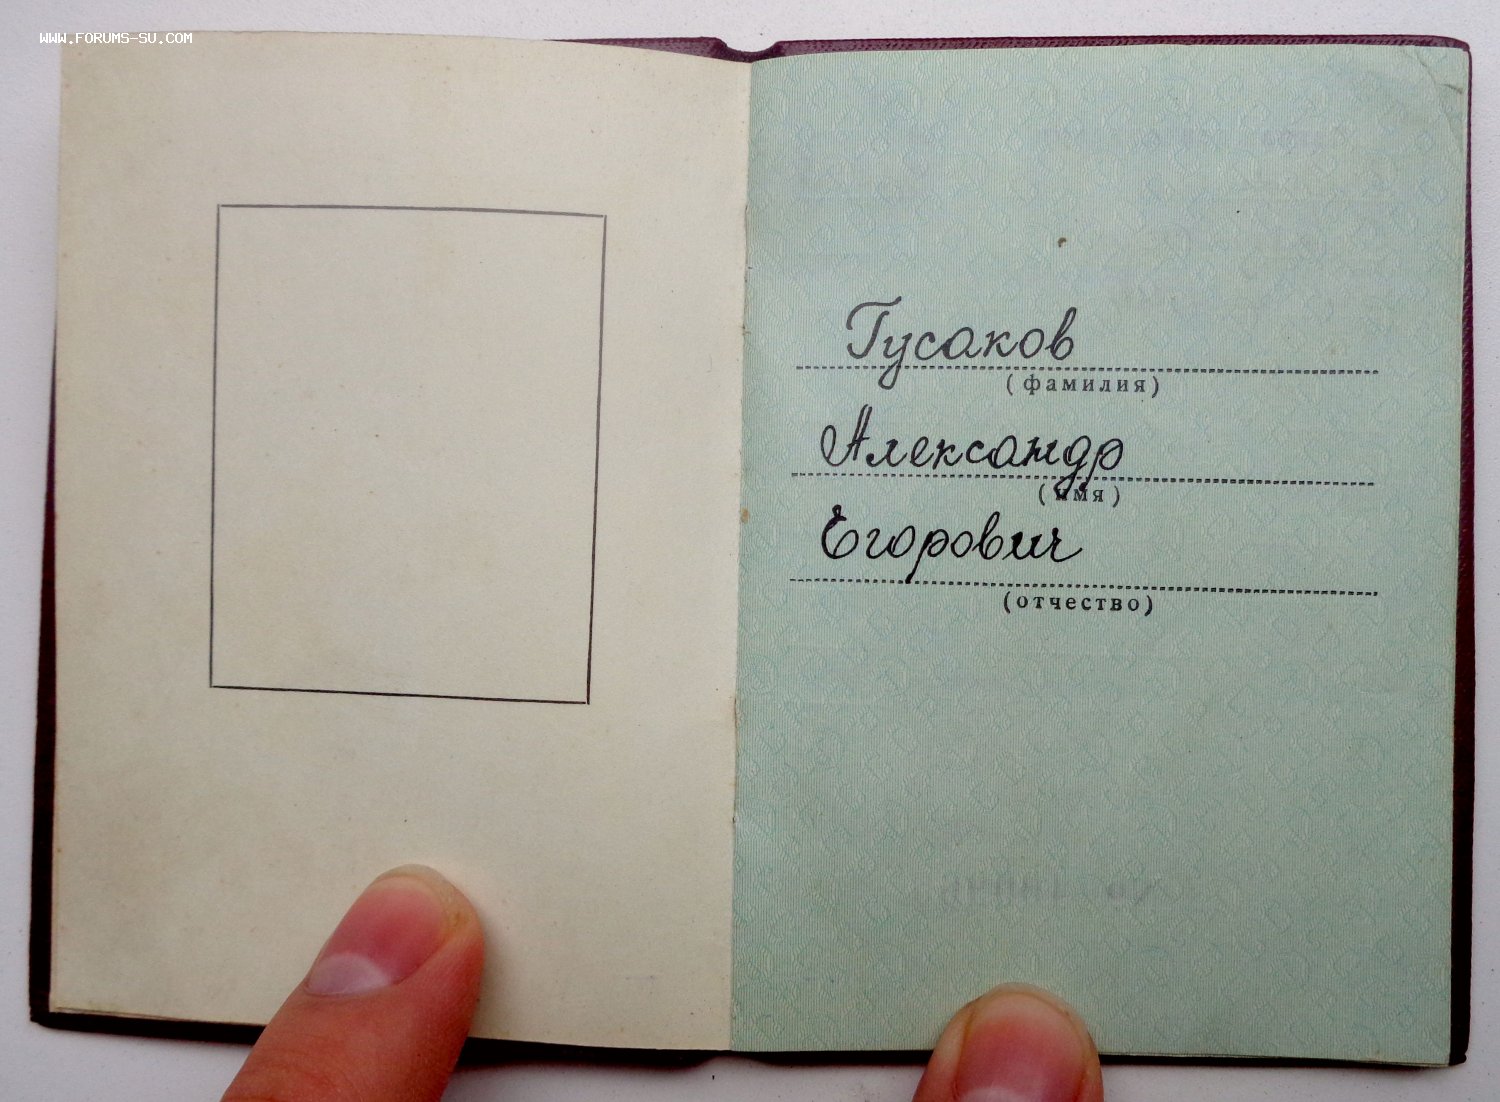 WWW.FORUMS-SU.COM
Гусаков
(фамилия)
Александр
(имя)
Егорович
(отчество)